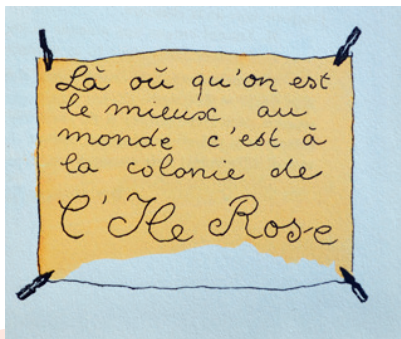 Là où qu'on est
le mieux au
monde c'est à
la colonie de
l'Ile Rose